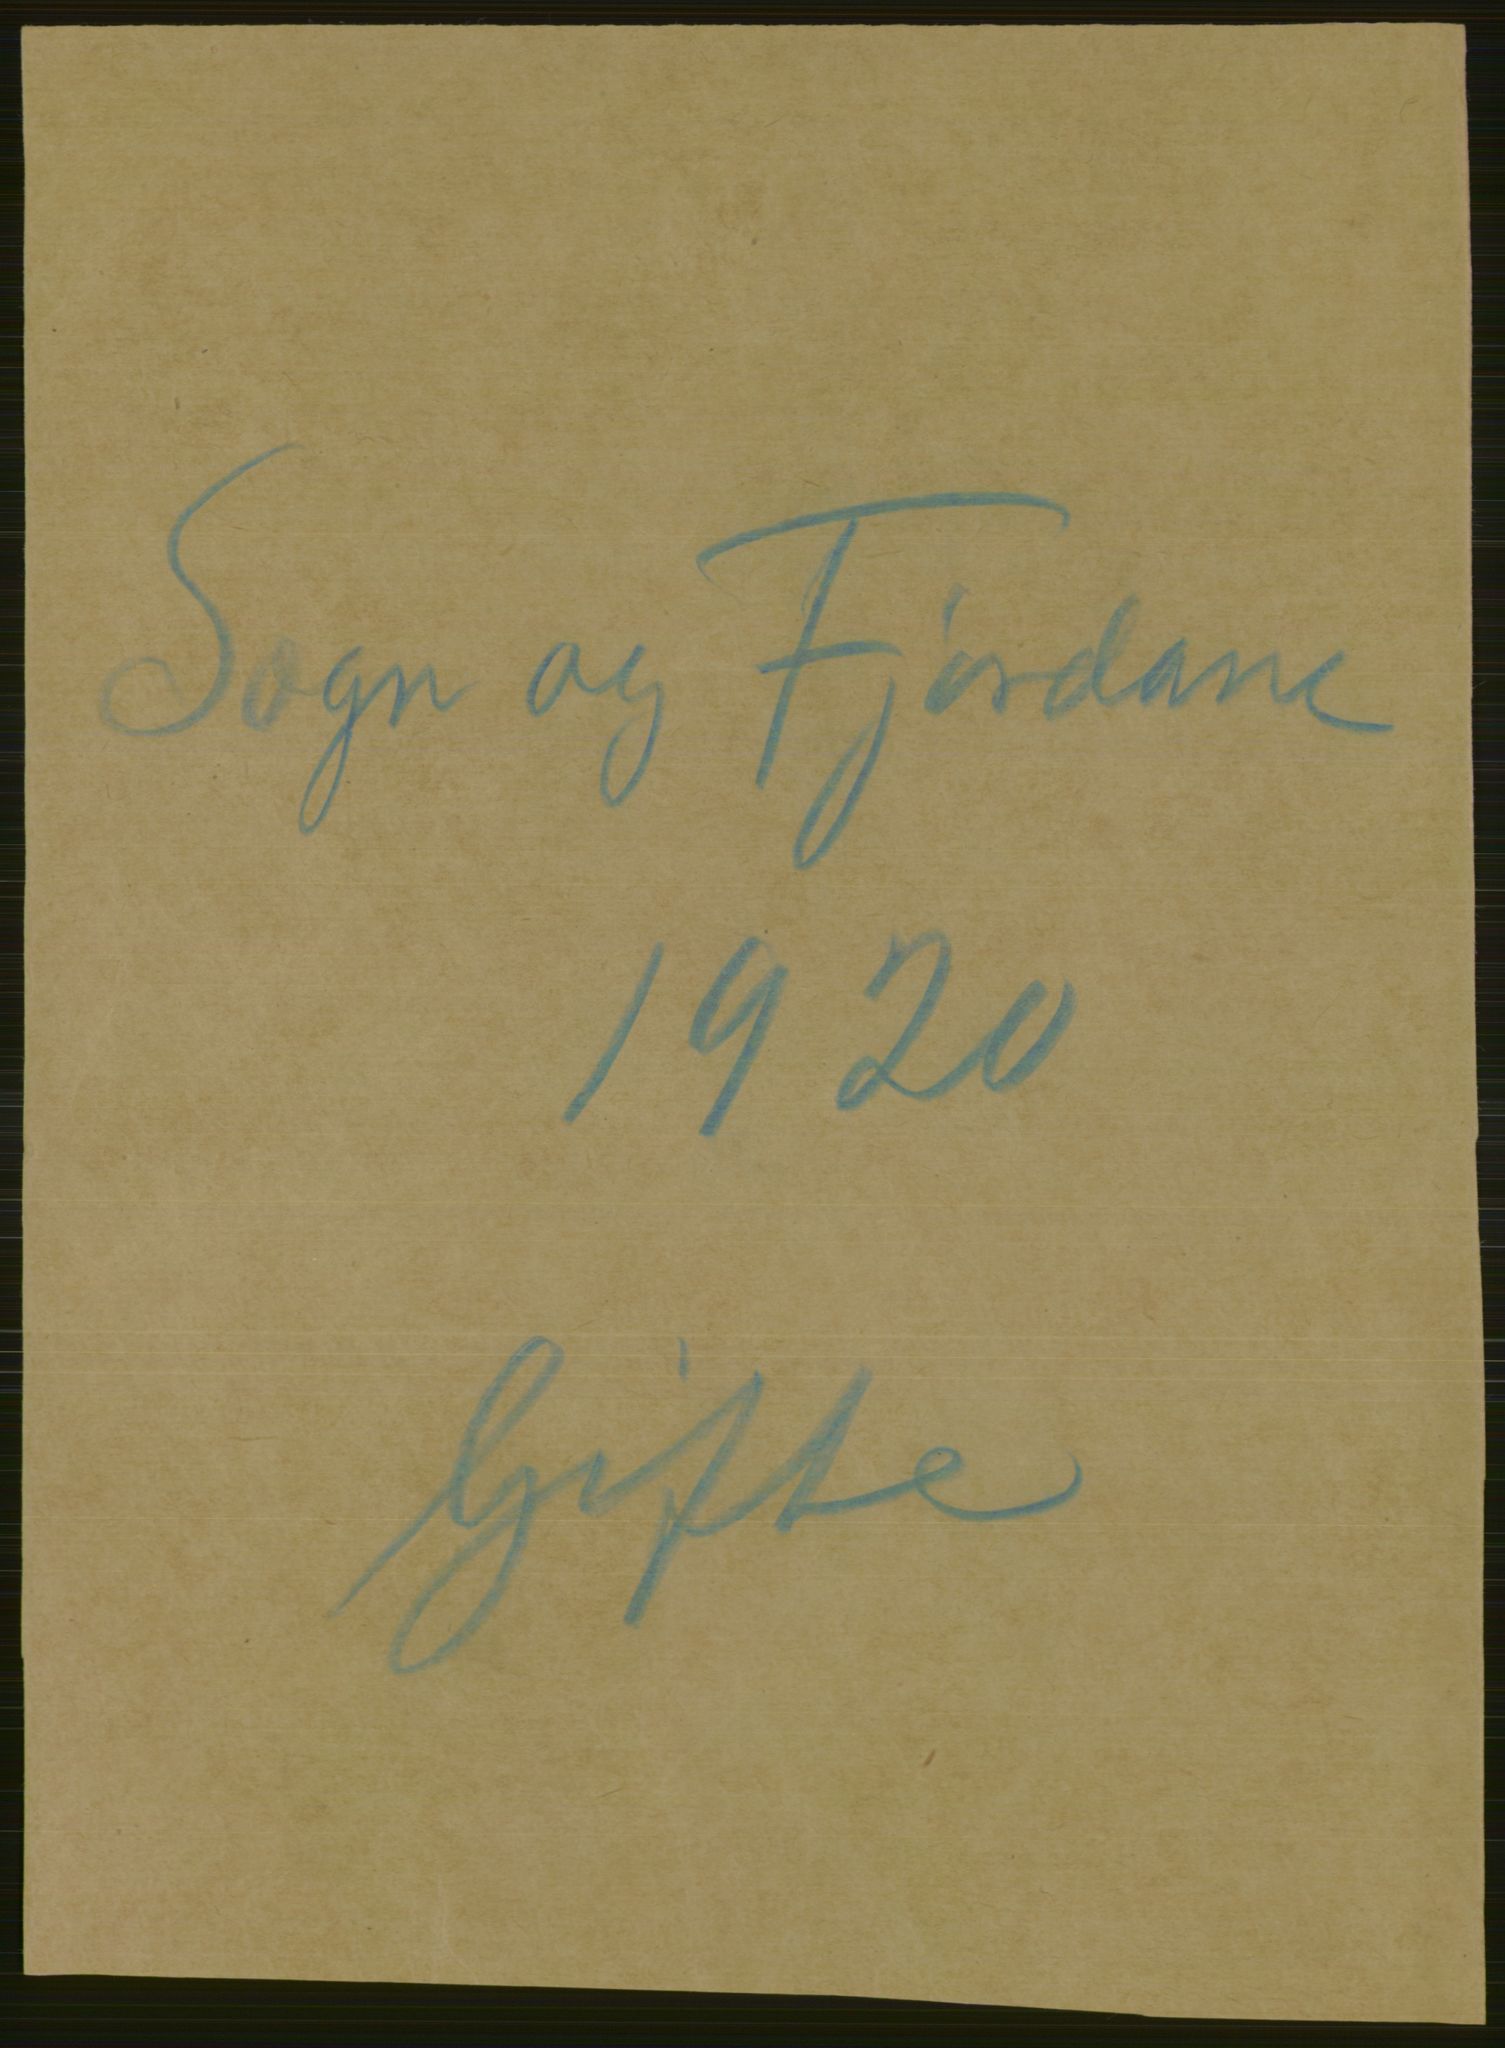 Sogn og Fjordane
1920
Gifte